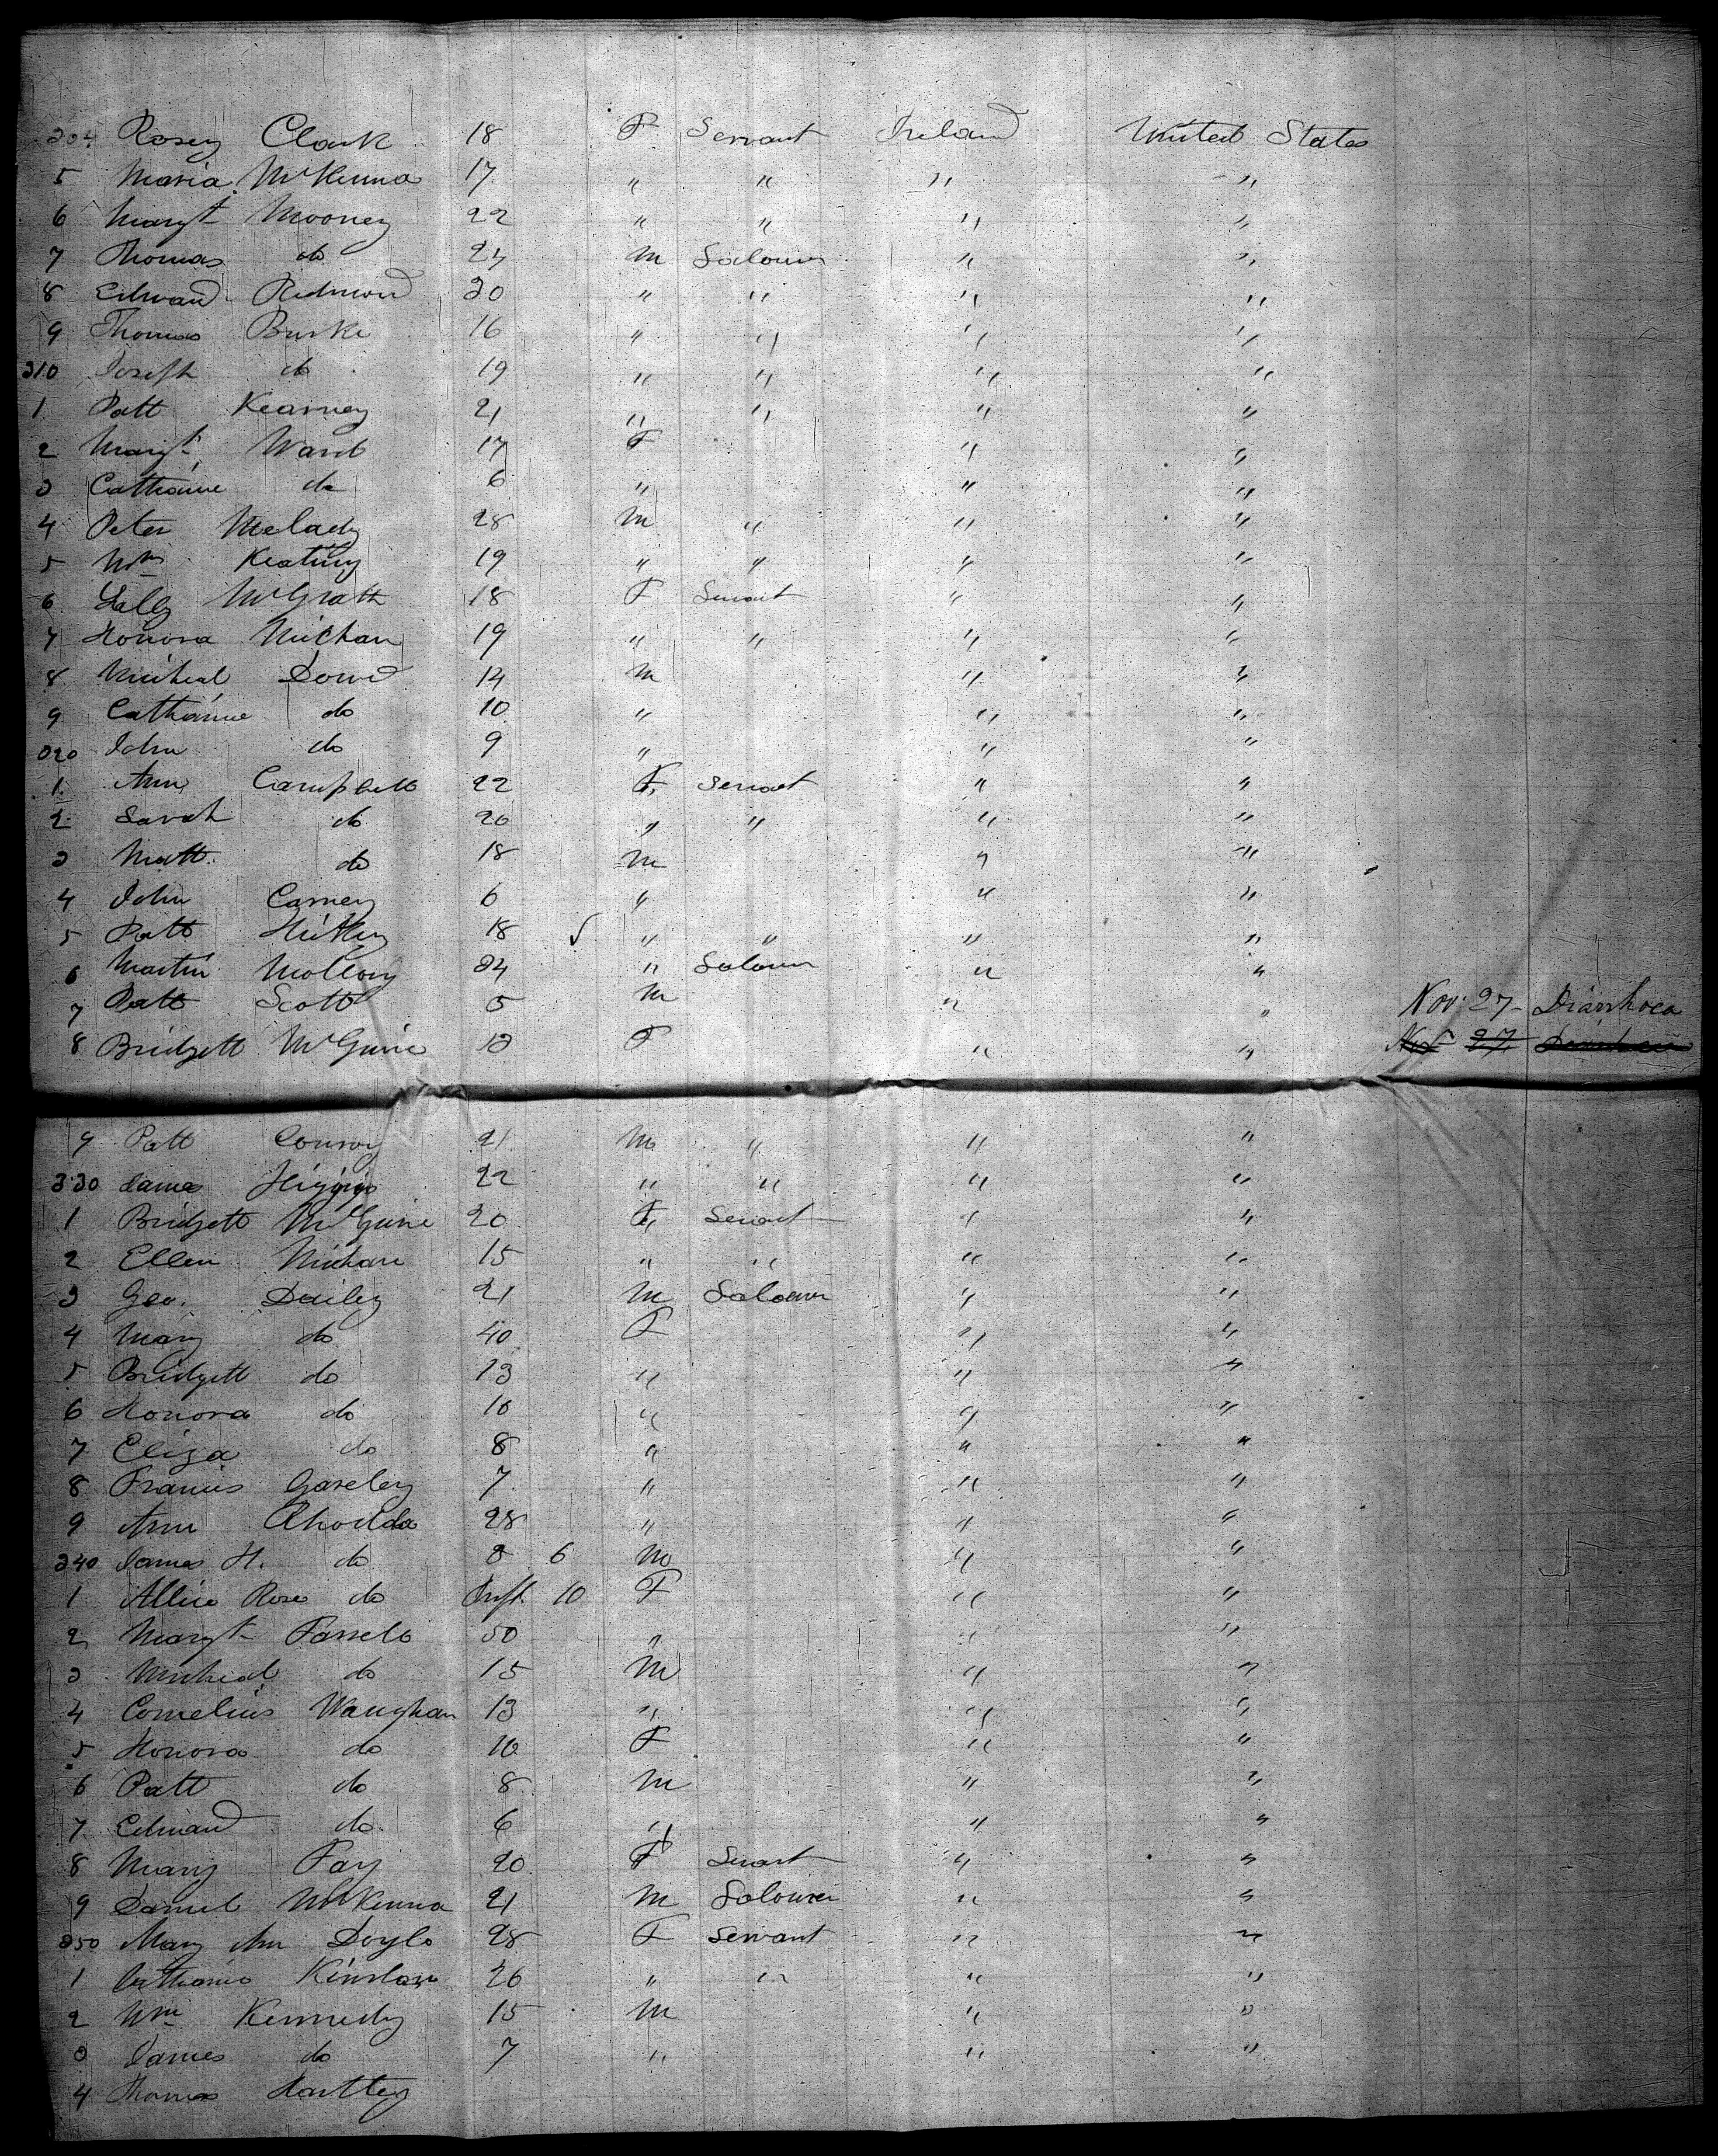 304 Rosey Clark 18 F Servant Ireland United States
5 Maria McKenna 17 " " " "
6 Margt Mooney 22 " " " "
7 Thomas do 24 M Labourer " "
8 Edward Redmond 20 " " " "
9 Thomas Burke 16 " " " "
310 Joseph do 19 " " " "
1 Patt Kearney 21 " " " "
2 Margt Ward 17 F " "
3 Catharine do 6 " " "
4 Peter Melady 28 M " " "
5 Wm Keating 19 " " " "
6 McGrath 18 F Servant " "
7 Honora Michan 19 " " " "
8 Micheal Dowd 14 M " "
9 Catharine do 10 " " "
320 John do 9 " " "
1 Ann Campbell 22 F Servant " "
2 Sarah do 20 " " " "
3 Matt do 18 M " "
4 John Carney 6 " " "
5 Patt 18 √ " " " "
6 Martin Mollony 34 " Labourer " "
7 Patt Scott 5 M " " Nov. 27 - Diarrhoea
8 Bridgett McGuire 13 F " " Nov 27 Diarrhoea
9 Patt Conroy 21 M " " "
330 James Higgins 22 " " " "
1 Bridgett McGuire 20 F Servant " "
2 Ellen Michan 15 " " " "
3 Geo. Dailey 21 M Labourer " "
4 Mary do 40 F " "
5 Bridgett do 13 " " "
6 Honora do 10 " " "
7 Eliza do 8 " " "
8 Francis Gaveley 7 " " "
9 Ann Rhodda 28 " " "
340 James H. do 3 6 M " "
1 Allice Rose do Inft 10 F " "
2 Margt Farrell 50 " " "
3 Micheal do 15 M " "
4 Cornelius Waughan 13 " " "
5 Honora do 10 F " "
6 Patt do 8 M " "
7 Edward do 6 " " "
8 Mary Fay 20 F Servant " "
9 Daniel McKenna 21 M Labourer " "
350 Mary Ann Doyle 28 F Servant " "
1 Catharine Kinslow 26 " " " "
2 Wm Kennedy 15 M " "
3 James do 7 " " "
4 Thomas Hartley